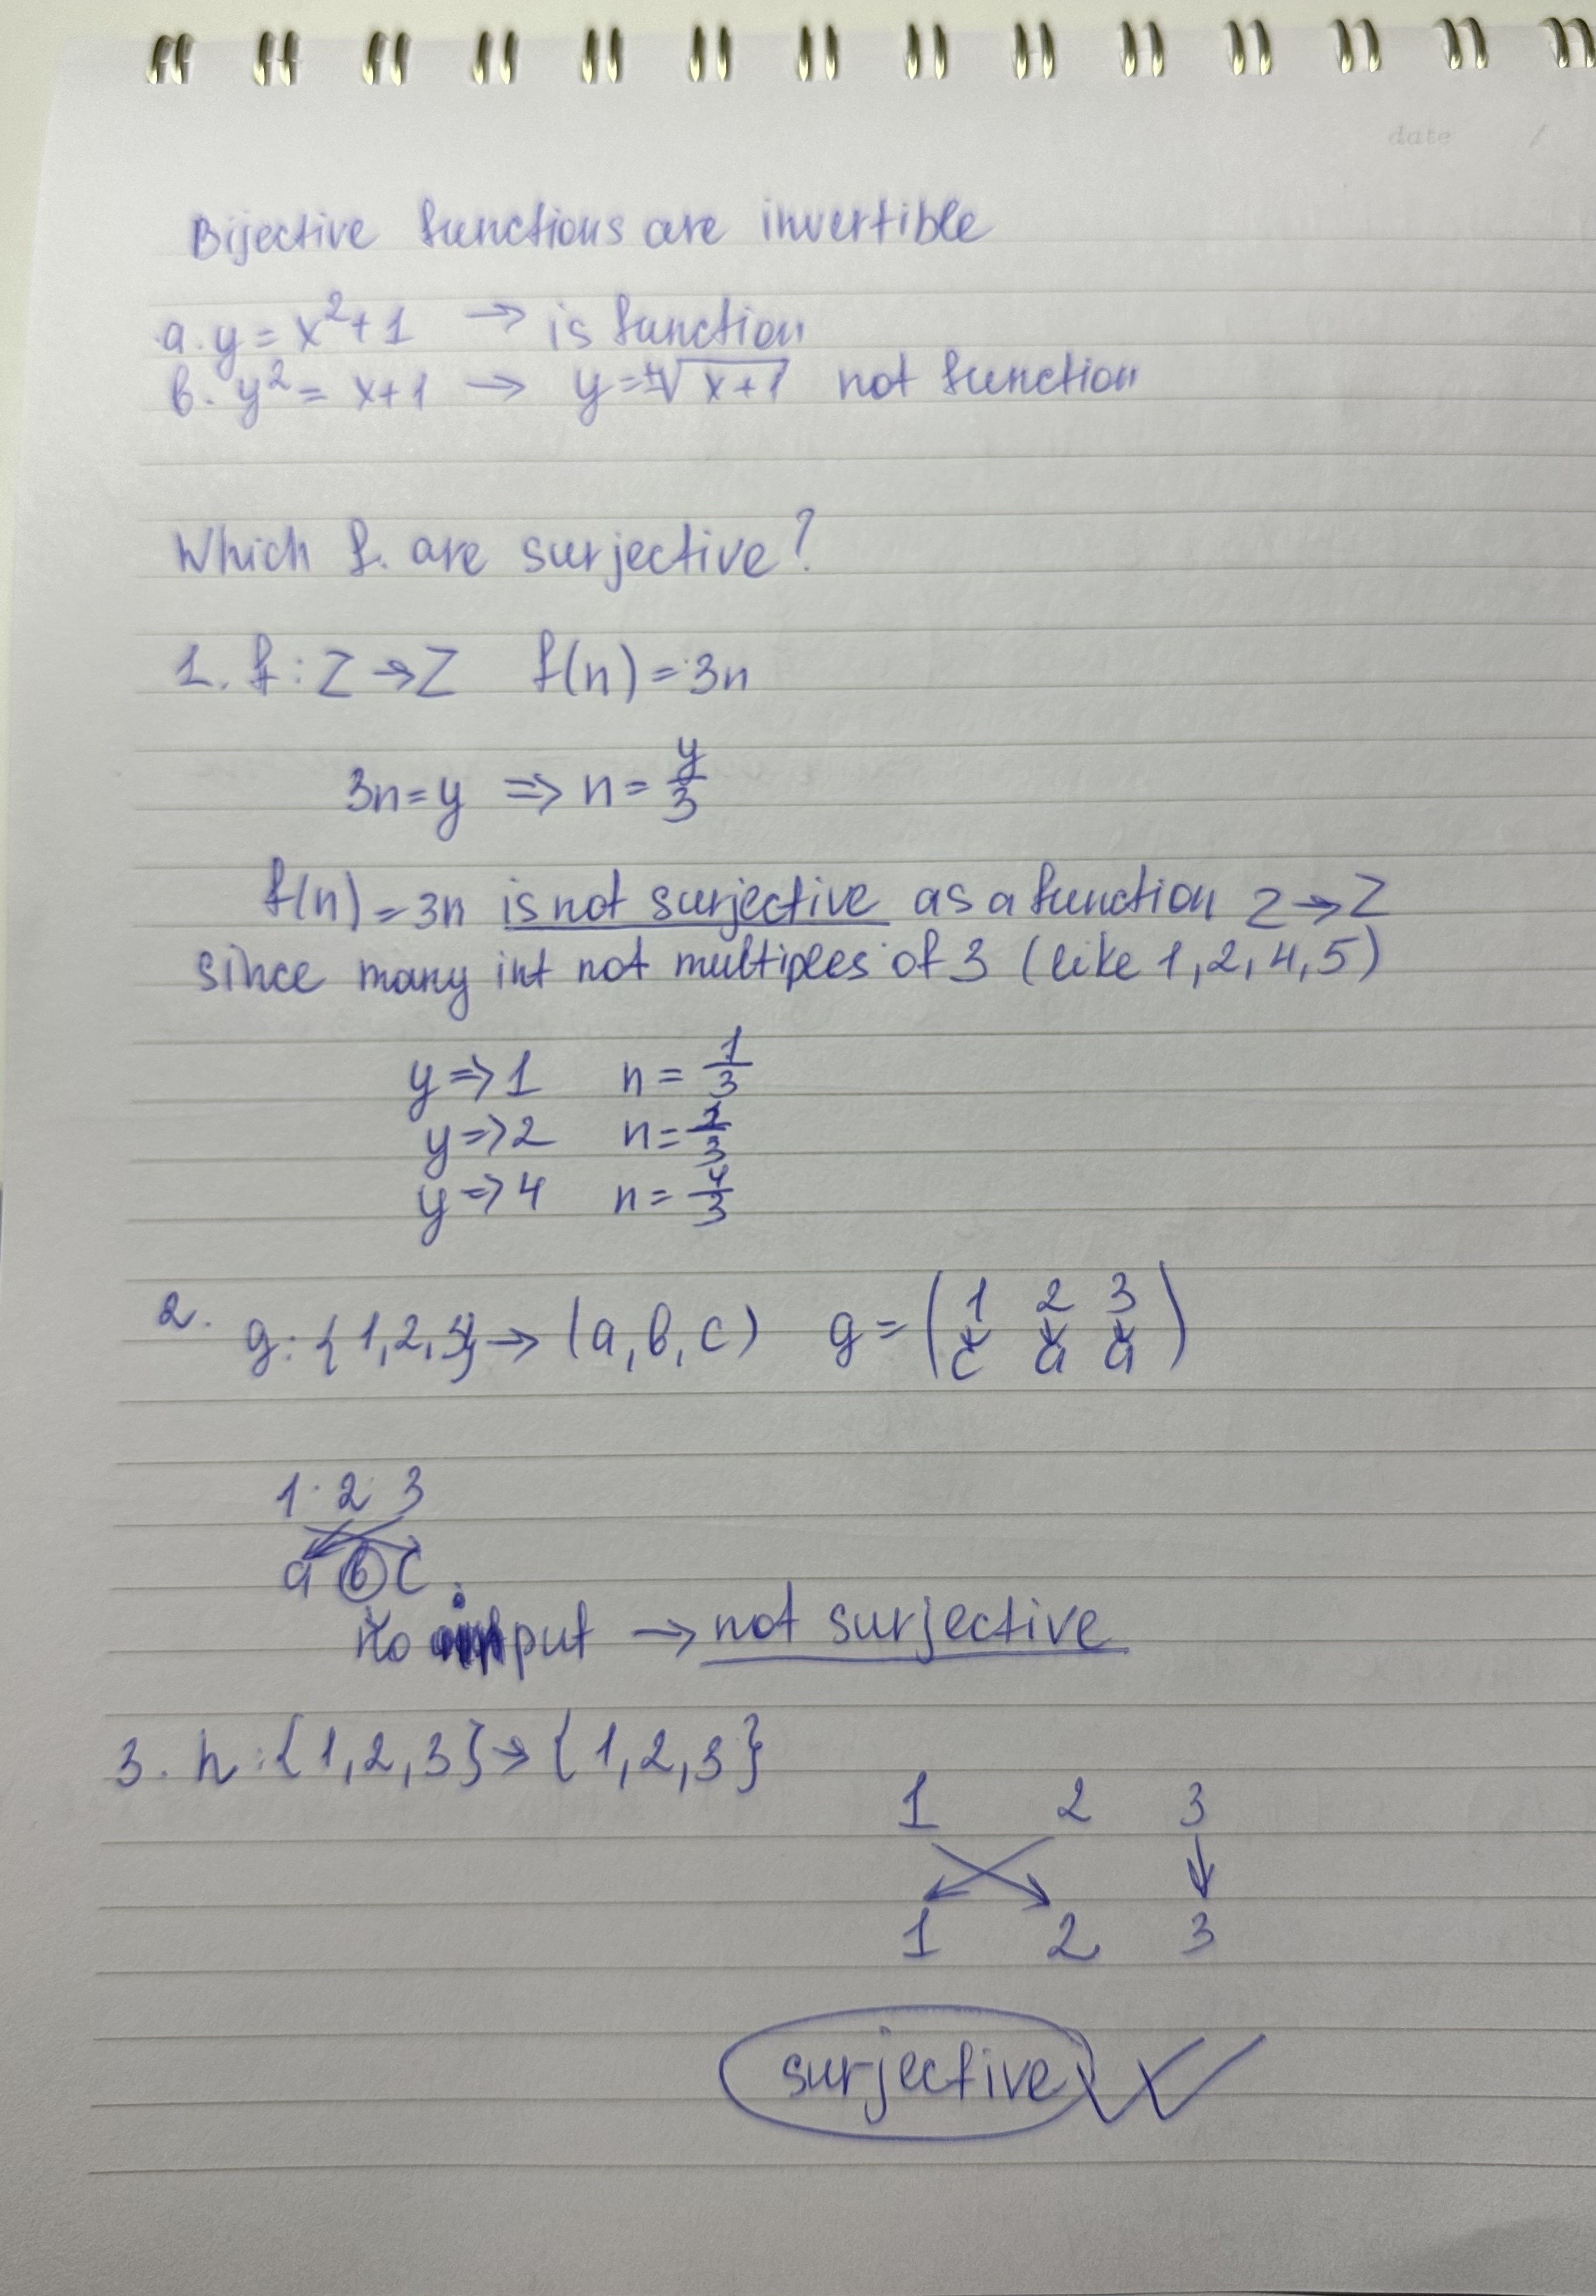 date /
Bijective functions are invertible
a. y = x²+1 → is function
b. y² = x+1 → y=±√x+1 not function
Which f. are surjective?
1. f: Z→Z f(n)=3n
3n=y ⇒ n= y/3
f(n)=3n is not surjective as a function Z→Z
since many int not multiples of 3 (like 1,2,4,5)
y⇒1 n= 1/3
y⇒2 n= 2/3
y⇒4 n= 4/3
2. g: {1,2,3}→(a,b,c) g= (1 2 3
c a a)
1 2 3
a b c
no input → not surjective
3. h:{1,2,3}→{1,2,3}
1 2 3
1 2 3
surjective